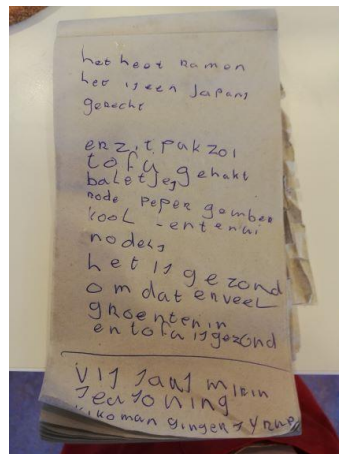 het heet Ramen
het is een Japans
gerecht
er zit pakzoi
tofu gehakt
baletjes
rode peper gember
kool - en tenui
nodels
het is gezond
omdat er veel
groenten in
en tofu is gezond
vis saus mirin
seasoning
kikoman ginger syrup